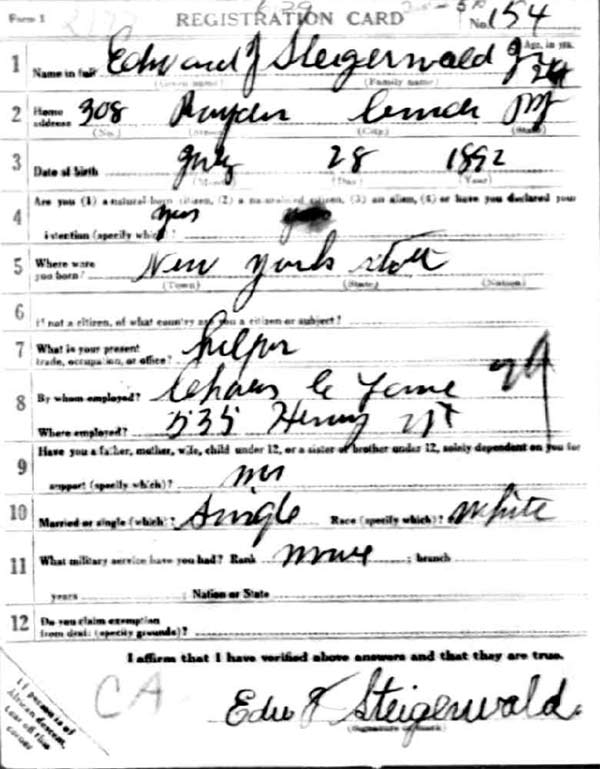 Form 1 REGISTRATION CARD No. 154
1 Name in full Edward J Steigerwald Jr Age, in yrs. 24
(Given name) (Family name)
2 Home address 308 (No.) (Street) (City) (State)
3 Date of birth July 28 1892
(Month) (Day) (Year)
4 Are you (1) a natural-born citizen, (2) a naturalized citizen, (3) an alien, (4) or have you declared your
intention (specify which)? yes
5 Where were you born? New York State
(Town) (State) (Nation)
6 If not a citizen, of what country are you a citizen or subject?
7 What is your present trade, occupation, or office? helper
8 By whom employed? Charles C
Where employed? 535 Henry St
9 Have you a father, mother, wife, child under 12, or a sister or brother under 12, solely dependent on you for
support (specify which)? no
10 Married or single (which)? Single Race (specify which)? White
11 What military service have you had? Rank none ; branch
years ; Nation or State
12 Do you claim exemption from draft (specify grounds)?
I affirm that I have verified above answers and that they are true.
If person is of African descent, tear off this corner
CA
Edw J Steigerwald
(Signature or mark)